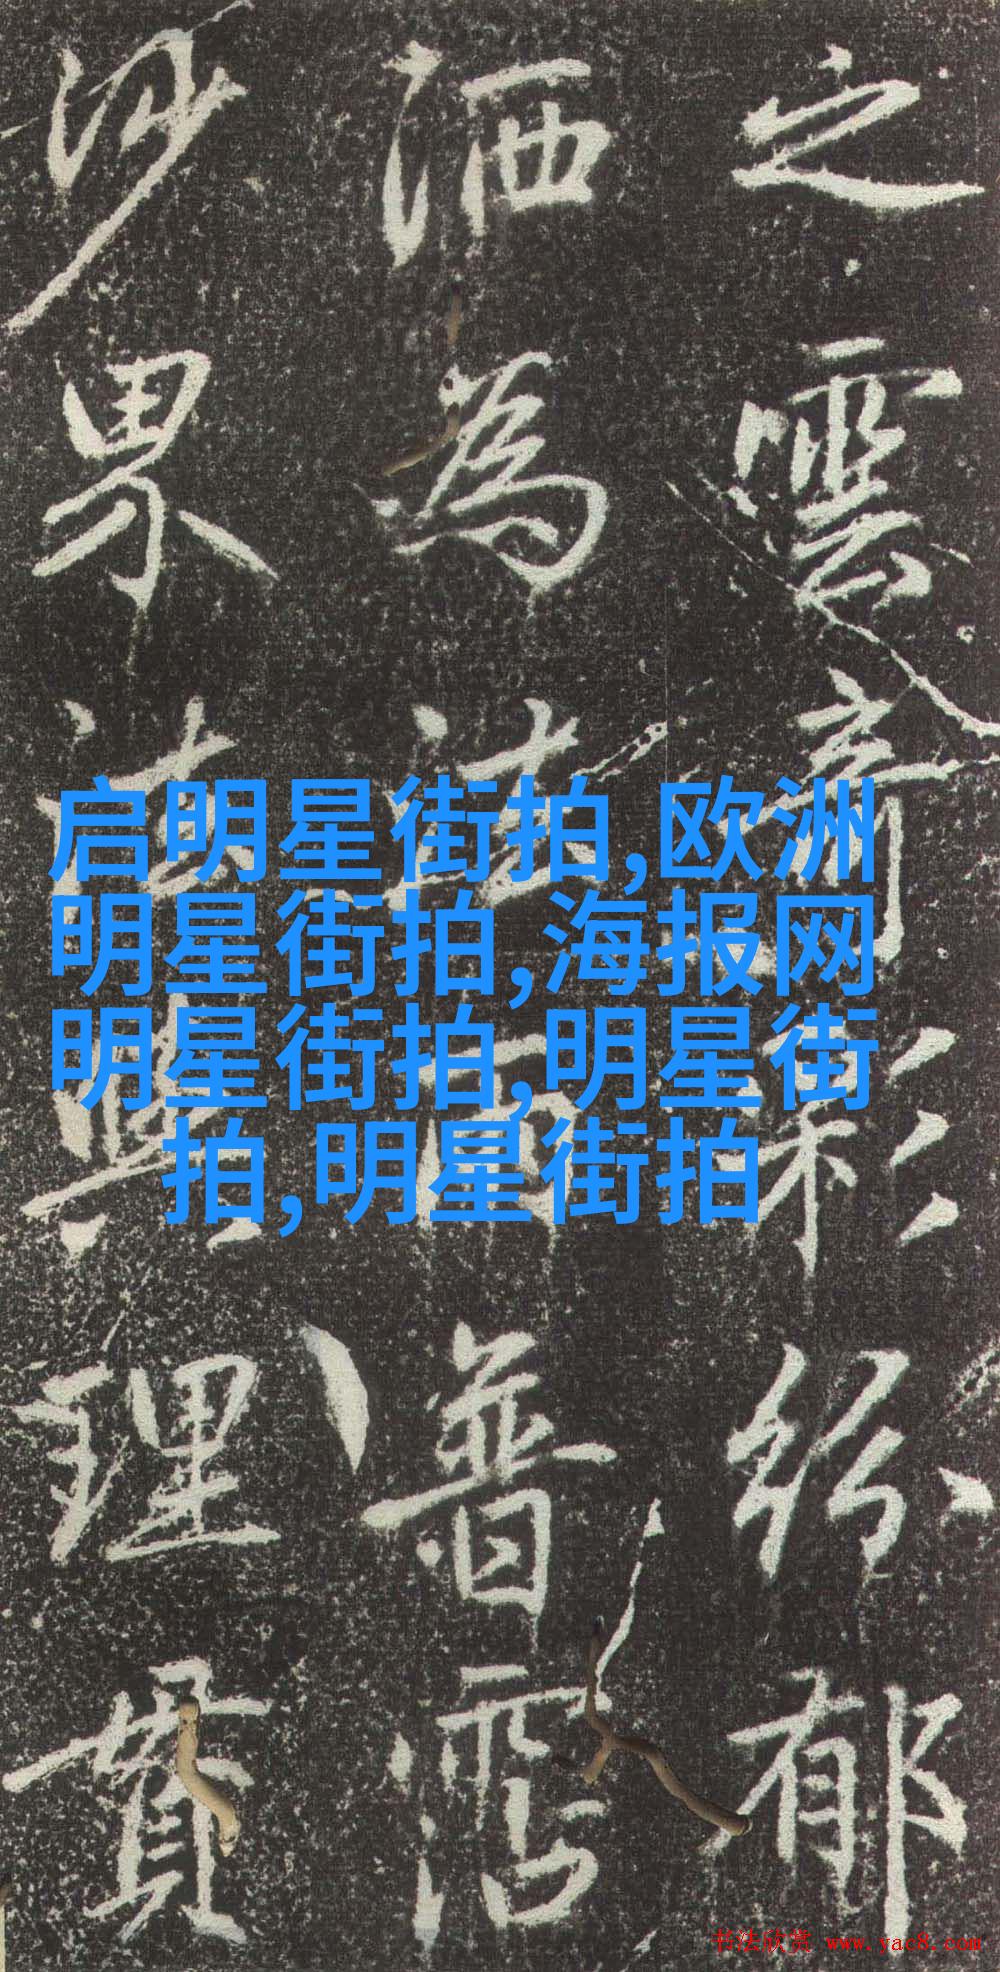 之雲彩紛郁
洒為法雨普霑
沙界法與理貫
启明星街拍,欧洲
明星街拍,海报网
明星街拍,明星街
拍,明星街拍
书法欣赏 www.yac8.com